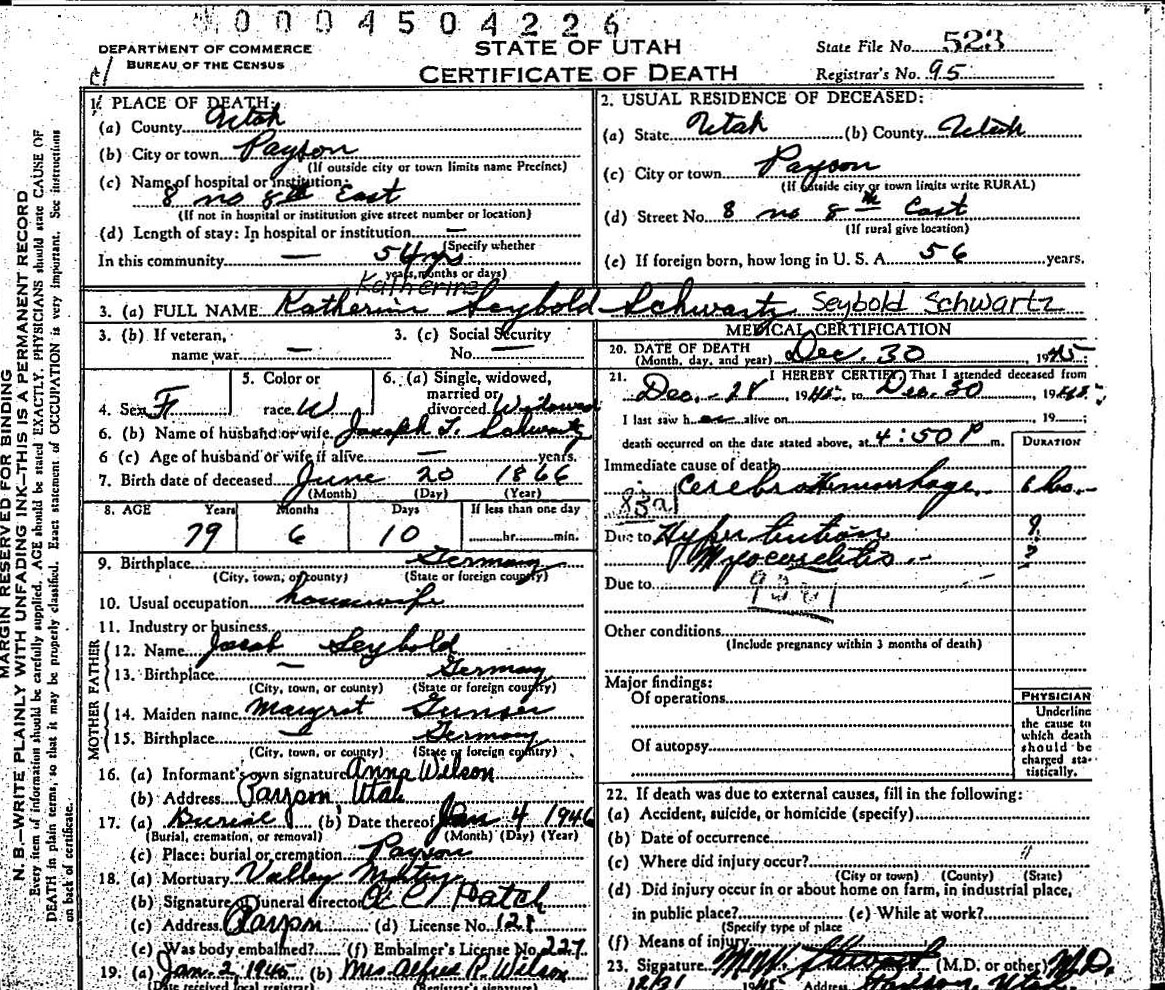 0004504226
DEPARTMENT OF COMMERCE
BUREAU OF THE CENSUS
STATE OF UTAH
CERTIFICATE OF DEATH
State File No. 523
Registrar's No. 95
MARGIN RESERVED FOR BINDING
N. B.—WRITE PLAINLY WITH UNFADING INK—THIS IS A PERMANENT RECORD
Every item of information should be carefully supplied. AGE should be stated EXACTLY. PHYSICIANS should state CAUSE OF
DEATH in plain terms, so that it may be properly classified. Exact statement of OCCUPATION is very important. See instructions
on back of certificate.
1. PLACE OF DEATH:
(a) County Utah
(b) City or town Payson
(If outside city or town limits name Precinct)
(c) Name of hospital or institution:
8 no 8th East
(If not in hospital or institution give street number or location)
(d) Length of stay: In hospital or institution —
(Specify whether
In this community — 54 yrs
years, months or days)
2. USUAL RESIDENCE OF DECEASED:
(a) State Utah (b) County Utah
(c) City or town Payson
(If outside city or town limits write RURAL)
(d) Street No. 8 no 8th East
(If rural give location)
(e) If foreign born, how long in U. S. A. 56 years.
Katherine
3. (a) FULL NAME Katherine Seybold Schwartz Seybold Schwartz
3. (b) If veteran,
name war —
3. (c) Social Security
No. —
4. Sex F
5. Color or
race W
6. (a) Single, widowed,
married or
divorced Widowed
6. (b) Name of husband or wife Joseph T. Schwartz
6 (c) Age of husband or wife if alive — years.
7. Birth date of deceased June 20 1866
(Month) (Day) (Year)
8. AGE Years Months Days If less than one day
79 6 10 hr. min.
9. Birthplace Germany
(City, town, or county) (State or foreign country)
10. Usual occupation housewife
11. Industry or business
FATHER
12. Name Jacob Seybold
13. Birthplace — Germany
(City, town, or county) (State or foreign country)
MOTHER
14. Maiden name Margret Gunser
15. Birthplace — Germany
(City, town, or county) (State or foreign country)
16. (a) Informant's own signature Anna Wilson
(b) Address Payson, Utah
17. (a) Burial (b) Date thereof Jan 4 1946
(Burial, cremation, or removal) (Month) (Day) (Year)
(c) Place: burial or cremation Payson
18. (a) Mortuary Valley Mortuary
(b) Signature of funeral director Hatch
(c) Address Payson (d) License No. 128
(e) Was body embalmed? (f) Embalmer's License No. 227
19. (a) Jan. 2 1945 (b) Mrs Alfred R. Wilson
(Date received local registrar) Registrar's signature)
MEDICAL CERTIFICATION
20. DATE OF DEATH
(Month, day, and year) Dec. 30, 1945;
21. I HEREBY CERTIFY That I attended deceased from
Dec. 28 1945, to Dec. 30, 1945;
I last saw her alive on 19
death occurred on the date stated above, at 4:50 P m.
DURATION
Immediate cause of death
Cerebro Hemorrhage 6 hrs.
83a
Due to Hypertension ?
Myocarditis ?
Due to
Other conditions
(Include pregnancy within 3 months of death)
Major findings:
Of operations
Of autopsy
PHYSICIAN
Underline
the cause to
which death
should be
charged sta-
tistically.
22. If death was due to external causes, fill in the following:
(a) Accident, suicide, or homicide (specify)
(b) Date of occurrence
(c) Where did injury occur?
(City or town) (County) (State)
(d) Did injury occur in or about home on farm, in industrial place,
in public place? (e) While at work?
(Specify type of place
(f) Means of injury
23. Signature Stewart (M.D. or other) M.D.
12/31 1945 Address Payson, Utah